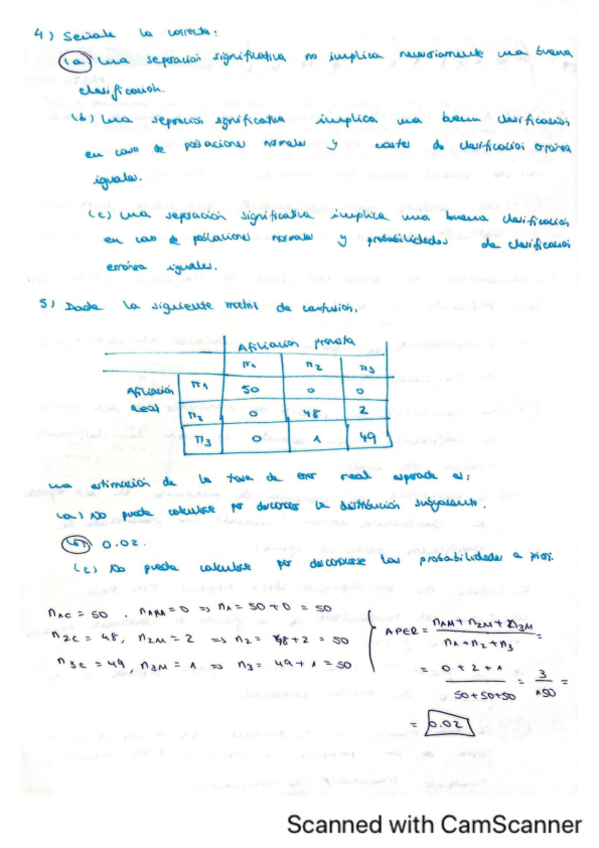 4) Señale la correcta:
(a) Una separación significativa no implica necesariamente una buena
clasificación.
(b) Una separación significativa implica una buena clasificación
en caso de poblaciones normales y costes de clasificación errónea
iguales.
(c) Una separación significativa implica una buena clasificación
en caso de poblaciones normales y probabilidades de clasificación
errónea iguales.
5) Dada la siguiente matriz de confusión,
Afiliación prevista
π1 π2 π3
Afiliación π1 50 0 0
Real π2 0 48 2
π3 0 1 49
una estimación de la tasa de error real esperada es:
(a) No puede calcularse por desconocer la distribución subyacente.
(b) 0.02.
(c) No puede calcularse por desconocerse las probabilidades a priori.
n1C = 50 , n1M = 0 ⇒ n1 = 50 + 0 = 50
n2C = 48, n2M = 2 ⇒ n2 = 48 + 2 = 50
n3C = 49, n3M = 1 ⇒ n3 = 49 + 1 = 50
APER = n1M + n2M + n3M / n1 + n2 + n3 =
= 0 + 2 + 1 / 50 + 50 + 50 = 3 / 150 =
= 0.02
Scanned with CamScanner